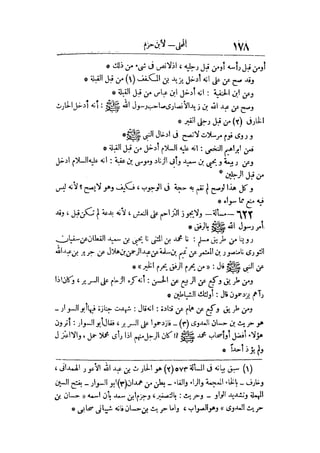 ١٧٨ المحلى — لابن حزم
أو من قبل رأسه أو من قبل رجليه ، اذ لا نص في شيء من ذلك *
وقد صح عن على أنه أدخل يزيد بن المكفف (١) من قبل القبلة *
وعن ابن الحنفية : أنه أدخل ابن عباس من قبل القبلة *
وصح عن عبد الله بن زيد الأنصارى صاحب رسول الله ﷺ : أنه أدخل الحارث
الخارفى (٢) من قبل رجلى القبر *
وروى قوم مرسلات لا تصح فى ادخال النبى ﷺ *
فعن ابراهيم النخعى : انه عليه السلام أدخل من قبل القبلة *
وعن ربيعة ويحيى بن سعيد وأبى الزناد وموسى بن عقبة : انه عليه السلام ادخل
من قبل الرجلين *
وكل هذا لو صح لم تقم به حجة فى الوجوب ، فكيف وهو لا يصح ؟ لانه ليس
فيه منع مما سواه *
٦٢٢ — مسألة — ولا يجوز التزاحم على النعش ، لانه بدعة لم تكن قبل ، وقد
أمر رسول الله ﷺ بالرفق *
روينا من طريق مسلم : نا محمد بن المثنى نا يحيى بن سعيد القطان عن سفيان
الثورى نا منصور بن المعتمر عن تميم بن سلمة عن عبد الرحمن بن هلال عن جرير بن عبد الله
عن النبى ﷺ قال : « من يحرم الرفق يحرم الخير » *
ومن طريق وكيع عن الربيع عن الحسن : أنه كره الزحام على السرير ، وكان اذا
رآهم يزدحمون قال : أولئك الشياطين *
ومن طريق وكيع عن همام عن قتادة : انه قال : شهدت جنازة فيها أبو السوار —
هو حريث بن حسان العدوى (٣) — فازدحموا على السرير ، فقال أبو السوار : أترون
هؤلاء أفضل أو أصحاب محمد ﷺ ؟! كان الرجل منهم اذا رأى محملا حمل ، والا اعتزل
ولم يؤذ أحداً *
(١) سبق بيانه فى المسألة ٥٧٣ (٢) هو الحارث بن عبد الله الأعور الهمدانى ،
وخارف — بالخاء المعجمة والراء والفاء — بطن من همدان (٣) ابو السوار — بفتح السين
المهملة وتشديد الواو — وحريث : بالتصغير ، وجزم ابن سعد بأن اسمه « حسان بن
حريث العدوى » وهو الصواب ، واما حريث بن حسان فانه شيبانى صحابى *